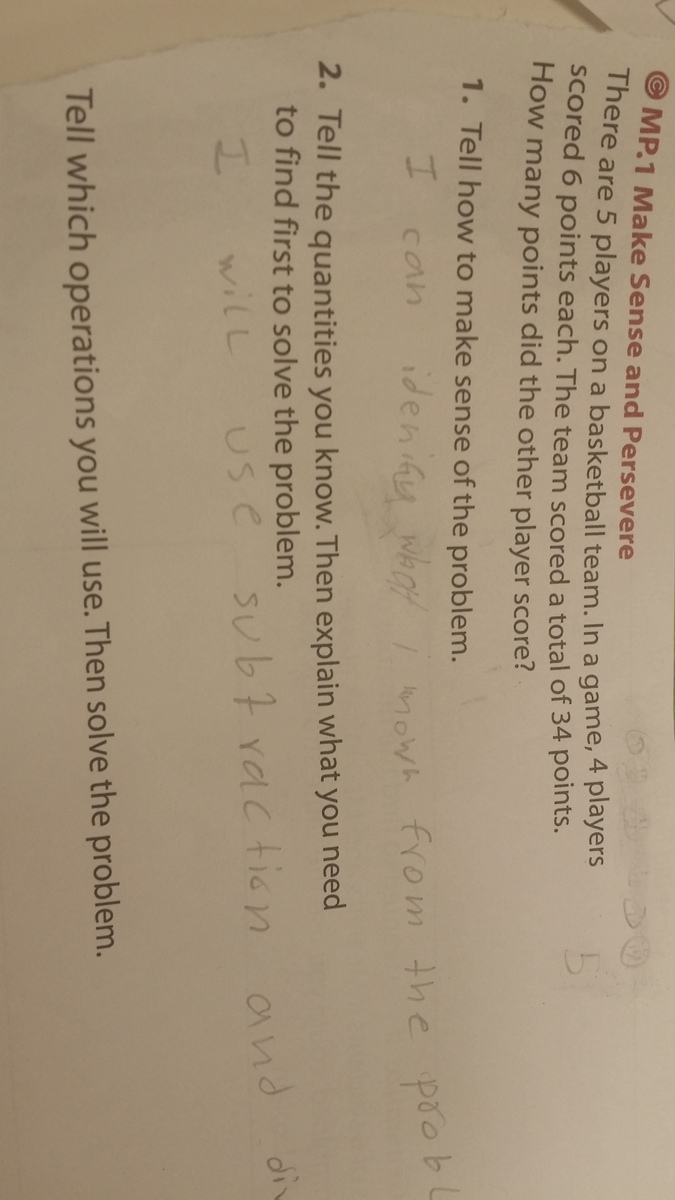 © MP.1 Make Sense and Persevere
There are 5 players on a basketball team. In a game, 4 players
scored 6 points each. The team scored a total of 34 points.
How many points did the other player score?
5
1. Tell how to make sense of the problem.
I can idenify what i know from the probl
2. Tell the quantities you know. Then explain what you need
to find first to solve the problem.
I will use subtraction and div
Tell which operations you will use. Then solve the problem.